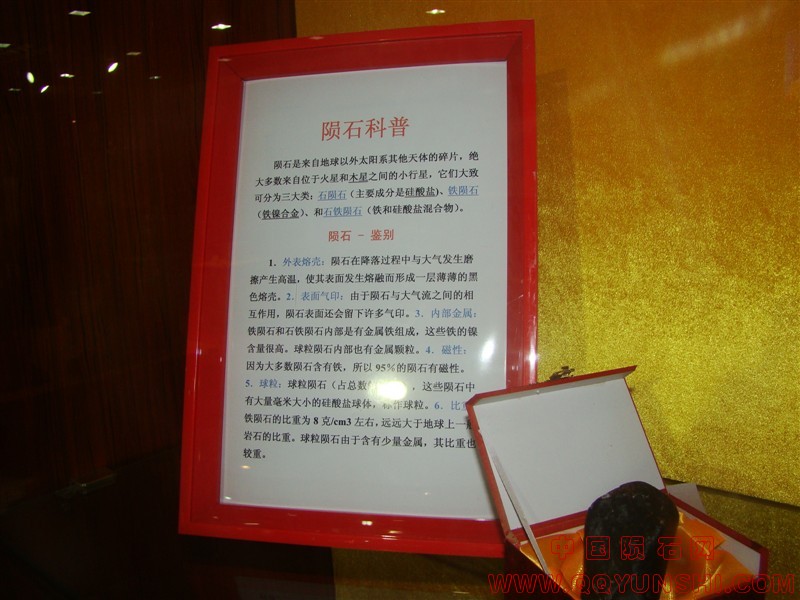 陨石科普
陨石是来自地球以外太阳系其他天体的碎片，绝
大多数来自位于火星和木星之间的小行星，它们大致
可分为三大类：石陨石（主要成分是硅酸盐)、铁陨石
（铁镍合金）、和石铁陨石（铁和硅酸盐混合物）。
陨石 - 鉴别
1．外表熔壳：陨石在降落过程中与大气发生磨
擦产生高温，使其表面发生熔融而形成一层薄薄的黑
色熔壳。2．表面气印：由于陨石与大气流之间的相
互作用，陨石表面还会留下许多气印。3．内部金属：
铁陨石和石铁陨石内部是有金属铁组成，这些铁的镍
含量很高。球粒陨石内部也有金属颗粒。4．磁性：
因为大多数陨石含有铁，所以 95%的陨石有磁性。
5．球粒：球粒陨石（占总数 ，这些陨石中
有大量毫米大小的硅酸盐球体，称作球粒。6．比
铁陨石的比重为 8 克/cm3 左右，远远大于地球上一般
岩石的比重。球粒陨石由于含有少量金属，其比重也
较重。
中国陨石网
WWW.QQYUNSHI.COM